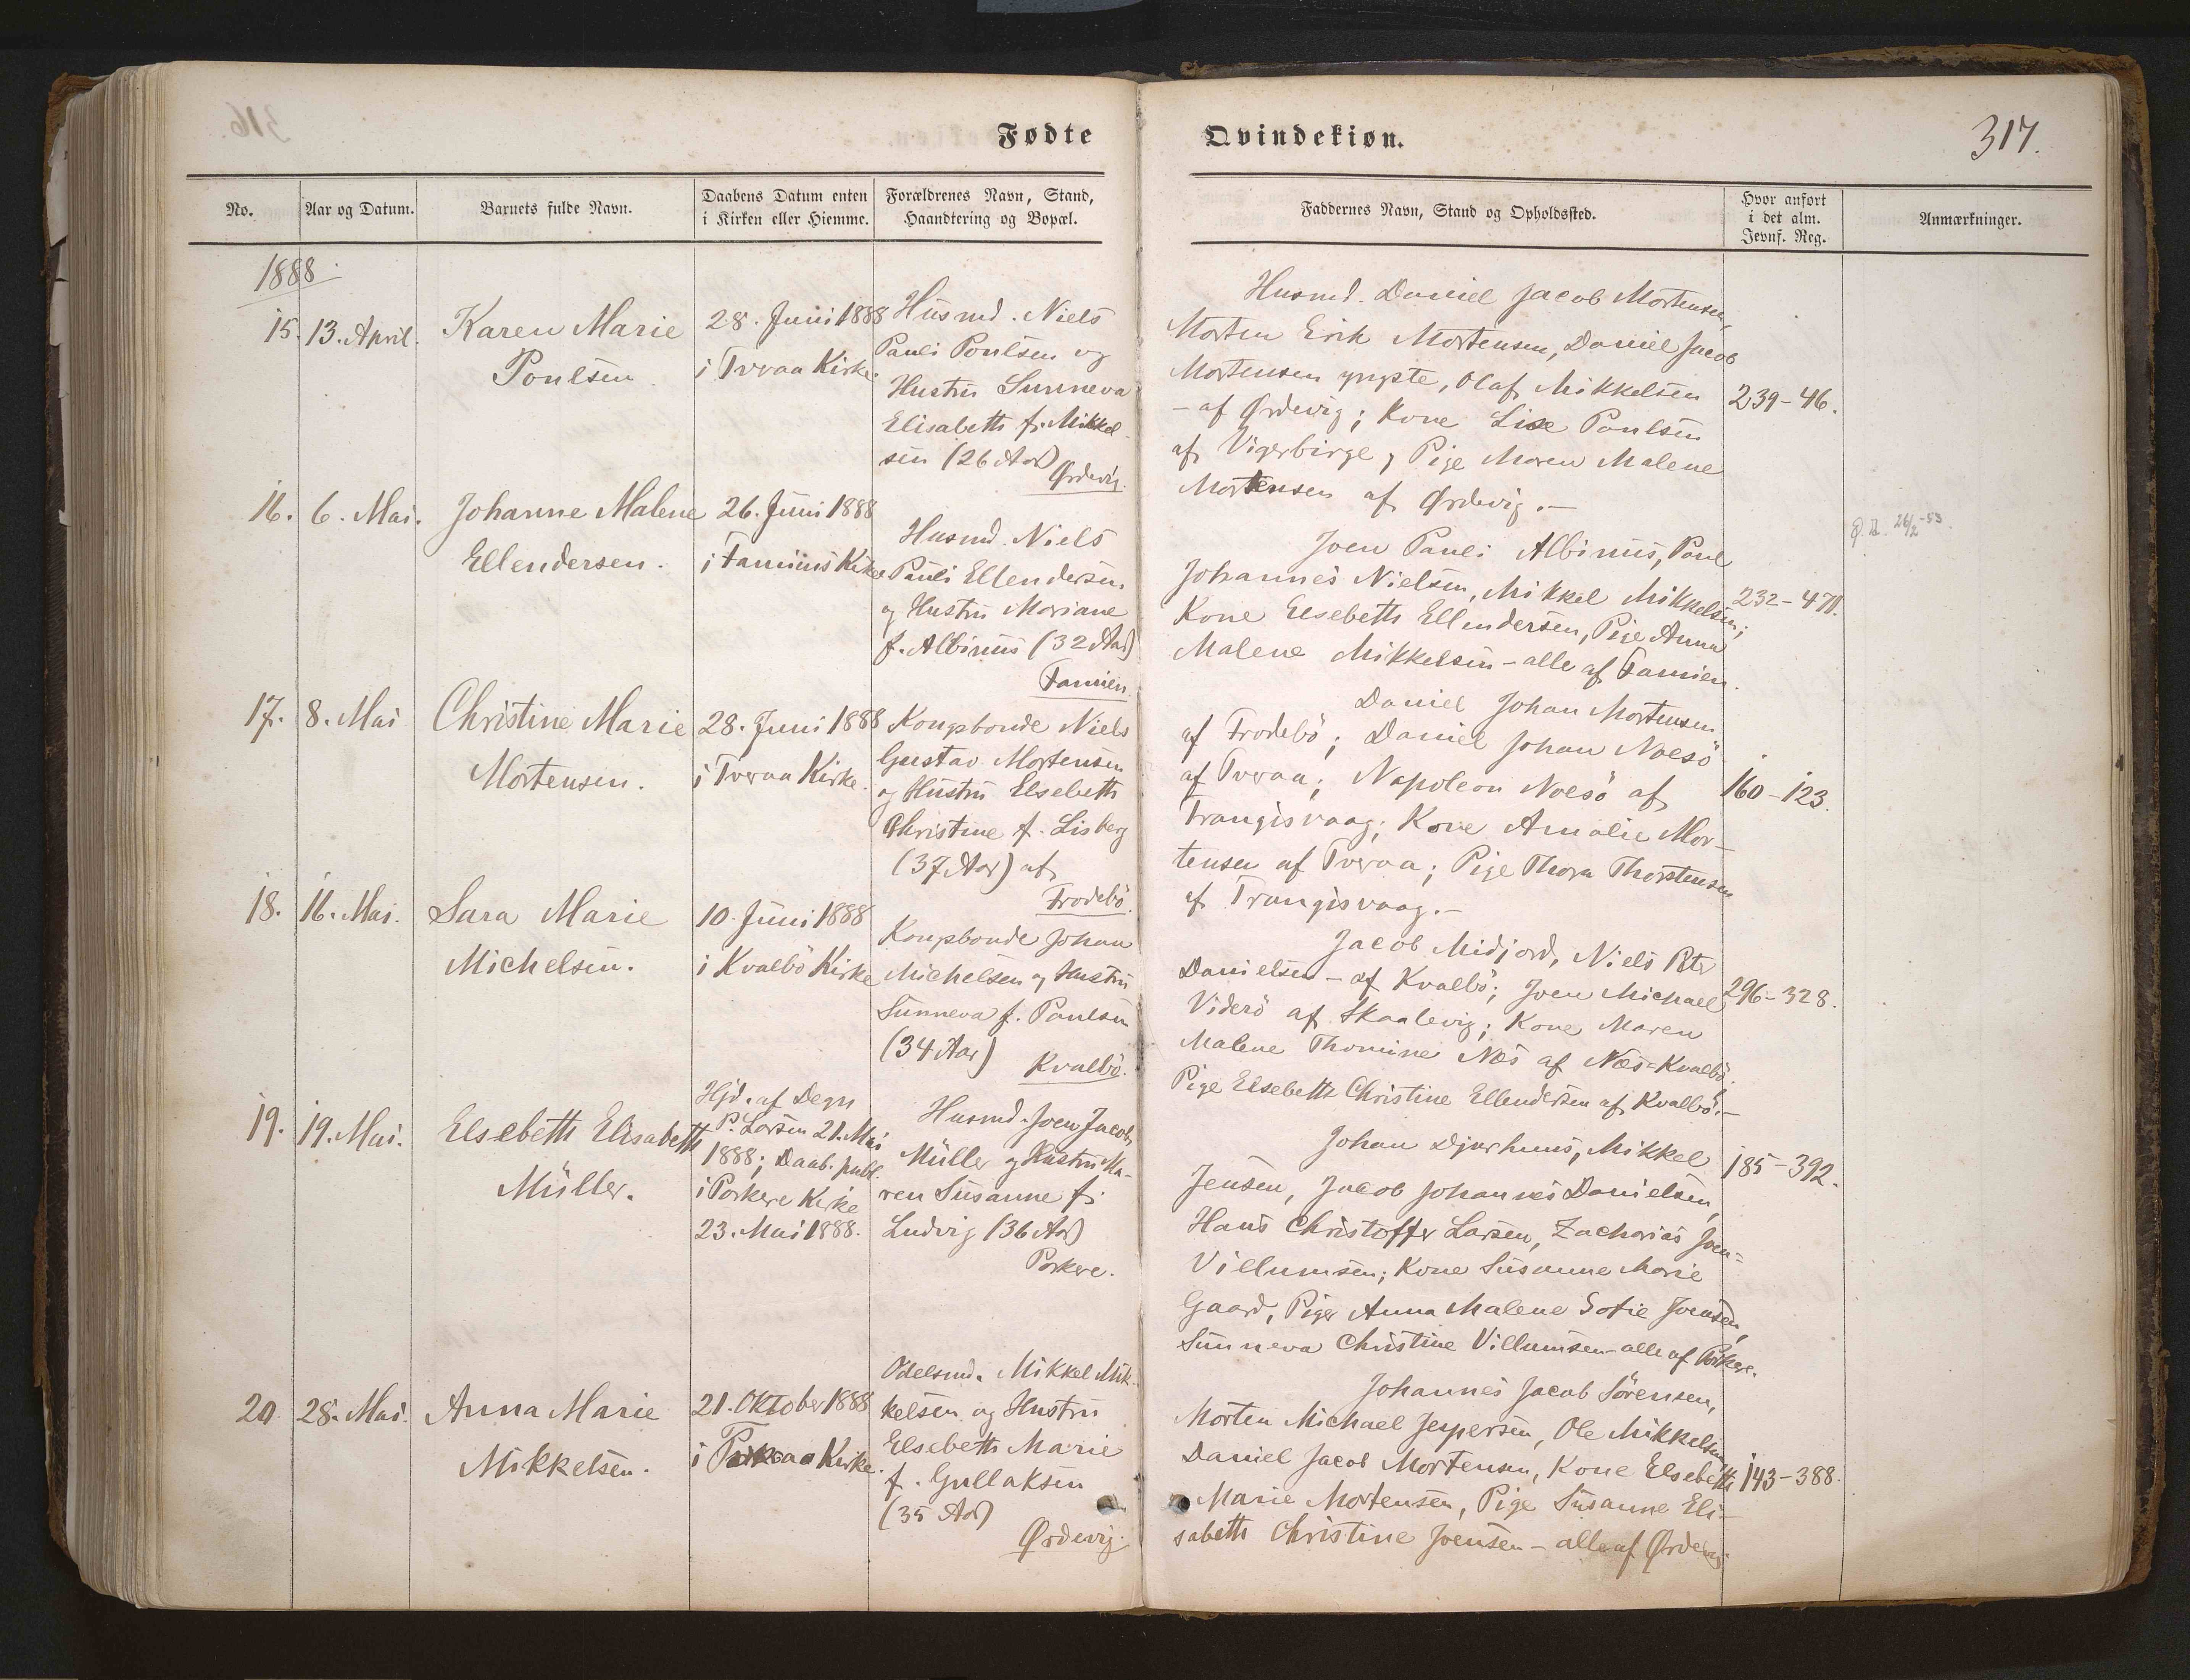 Fødte
Qvindekiøn.
317.
No.
Aar og Datum.
Barnets fulde Navn.
Daabens Datum enten
i Kirken eller Hiemme.
Forældrenes Navn, Stand,
Haandtering og Bopæl.
Faddernes Navn, Stand og Opholdssted.
Hvor anført
i det alm.
Jevnf. Reg.
Anmærkninger.
1888.
15.
13. April.
Karen Marie
Poulsen.
28. Juni 1888
i Tveraa Kirke.
Husmd. Niels
Pauli Poulsen og
Hustru Sunneva
Elisabeth f. Mikkel-
sen (26 Aar)
Ørdevig.
Husmd. Daniel Jacob Mortensen,
Morten Erik Mortensen, Daniel Jacob
Mortensen yngste, Olaf Mikkelsen
- af Ørdevig; Kone Lise Poulsen
af Vigerbirge, Pige Maren Malene
Mortensen af Ørdevig.-
239-46.
16.
6. Mai.
Johanne Malene
Ellendersen.
26. Juni 1888
i Famiens Kirke
Husmd. Niels
Pauli Ellendersen
og Hustru Mariane
f. Albinus (32 Aar)
Famien.
Joen Pauli Albinus, Poul
Johannes Nielsen, Mikkel Mikkelsen;
Kone Elsebeth Ellendersen, Pige Anna
Malene Mikkelsen - alle af Famien.
232-471.
26/2-53.
17.
8. Mai
Christine Marie
Mortensen.
28. Juni 1888
i Tveraa Kirke.
Kongsbonde Niels
Gustav Mortensen
og Hustru Elsebeth
Christine f. Lisberg
(37 Aar) af
Frodebö.
Daniel Johan Mortensen
af Frodebö; Daniel Johan Noesö
af Tveraa; Napoleon Noesö af
Trangisvaag; Kone Amalie Mor-
tensen af Tveraa; Pige Thora Thorstensen
af Trangisvaag.-
160-123.
18.
16. Mai.
Sara Marie
Michelsen.
10. Juni 1888
i Kvalbö Kirke
Kongsbonde Johan
Michelsen og Hustru
Sunneva f. Poulsen
(34 Aar)
Kvalbö.
Jacob Midjord, Niels Peter
Danielsen - af Kvalbö; Joen Michael
Viderö af Skaalevig; Kone Maren
Malene Thomine Næs af Næs-Kvalbö.
Pige Elsebeth Christine Ellendersen af Kvalbö.-
296-328.
19.
19. Mai.
Elsebeth Elisabeth
Müller.
Hjd. af Degn
P. Larsen 21. Mai
1888; Daab. publ.
i Porkere Kirke
23. Mai 1888.
Husmd. Joen Jacob
Müller og Hustru Ma-
ren Susanne f.
Ludvig (36 Aar)
Porkere.
Johan Djurhuus, Mikkel
Jensen, Jacob Johannes Danielsen,
Hans Christoffer Larsen, Zacharias Joen-
Villumsen; Kone Susanne Marie
Gaard, Piger Anna Malene Sofie Joensen,
Sunneva Christine Villumsen - alle af Porkere.
185-392.
20.
28. Mai.
Anna Marie
Mikkelsen.
21. Oktober 1888
i Tveraa Kirke.
Odelsmd. Mikkel Mik-
kelsen og Hustru
Elsebeth Marie
f. Gullaksen
(35 Aar)
Ørdevig.
Johannes Jacob Sörensen,
Morten Michael Jespersen, Ole Mikkelsen,
Daniel Jacob Mortensen, Kone Elsebeth
Marie Mortensen, Pige Susanne Eli-
sabeth Christine Joensen - alle af Ørdevig
143-388.